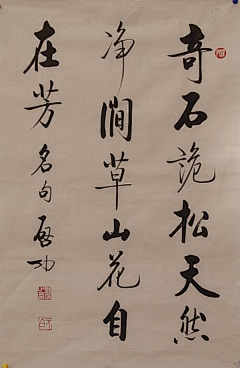 奇石诡松天然
净涧草山花自
在芳名句启功